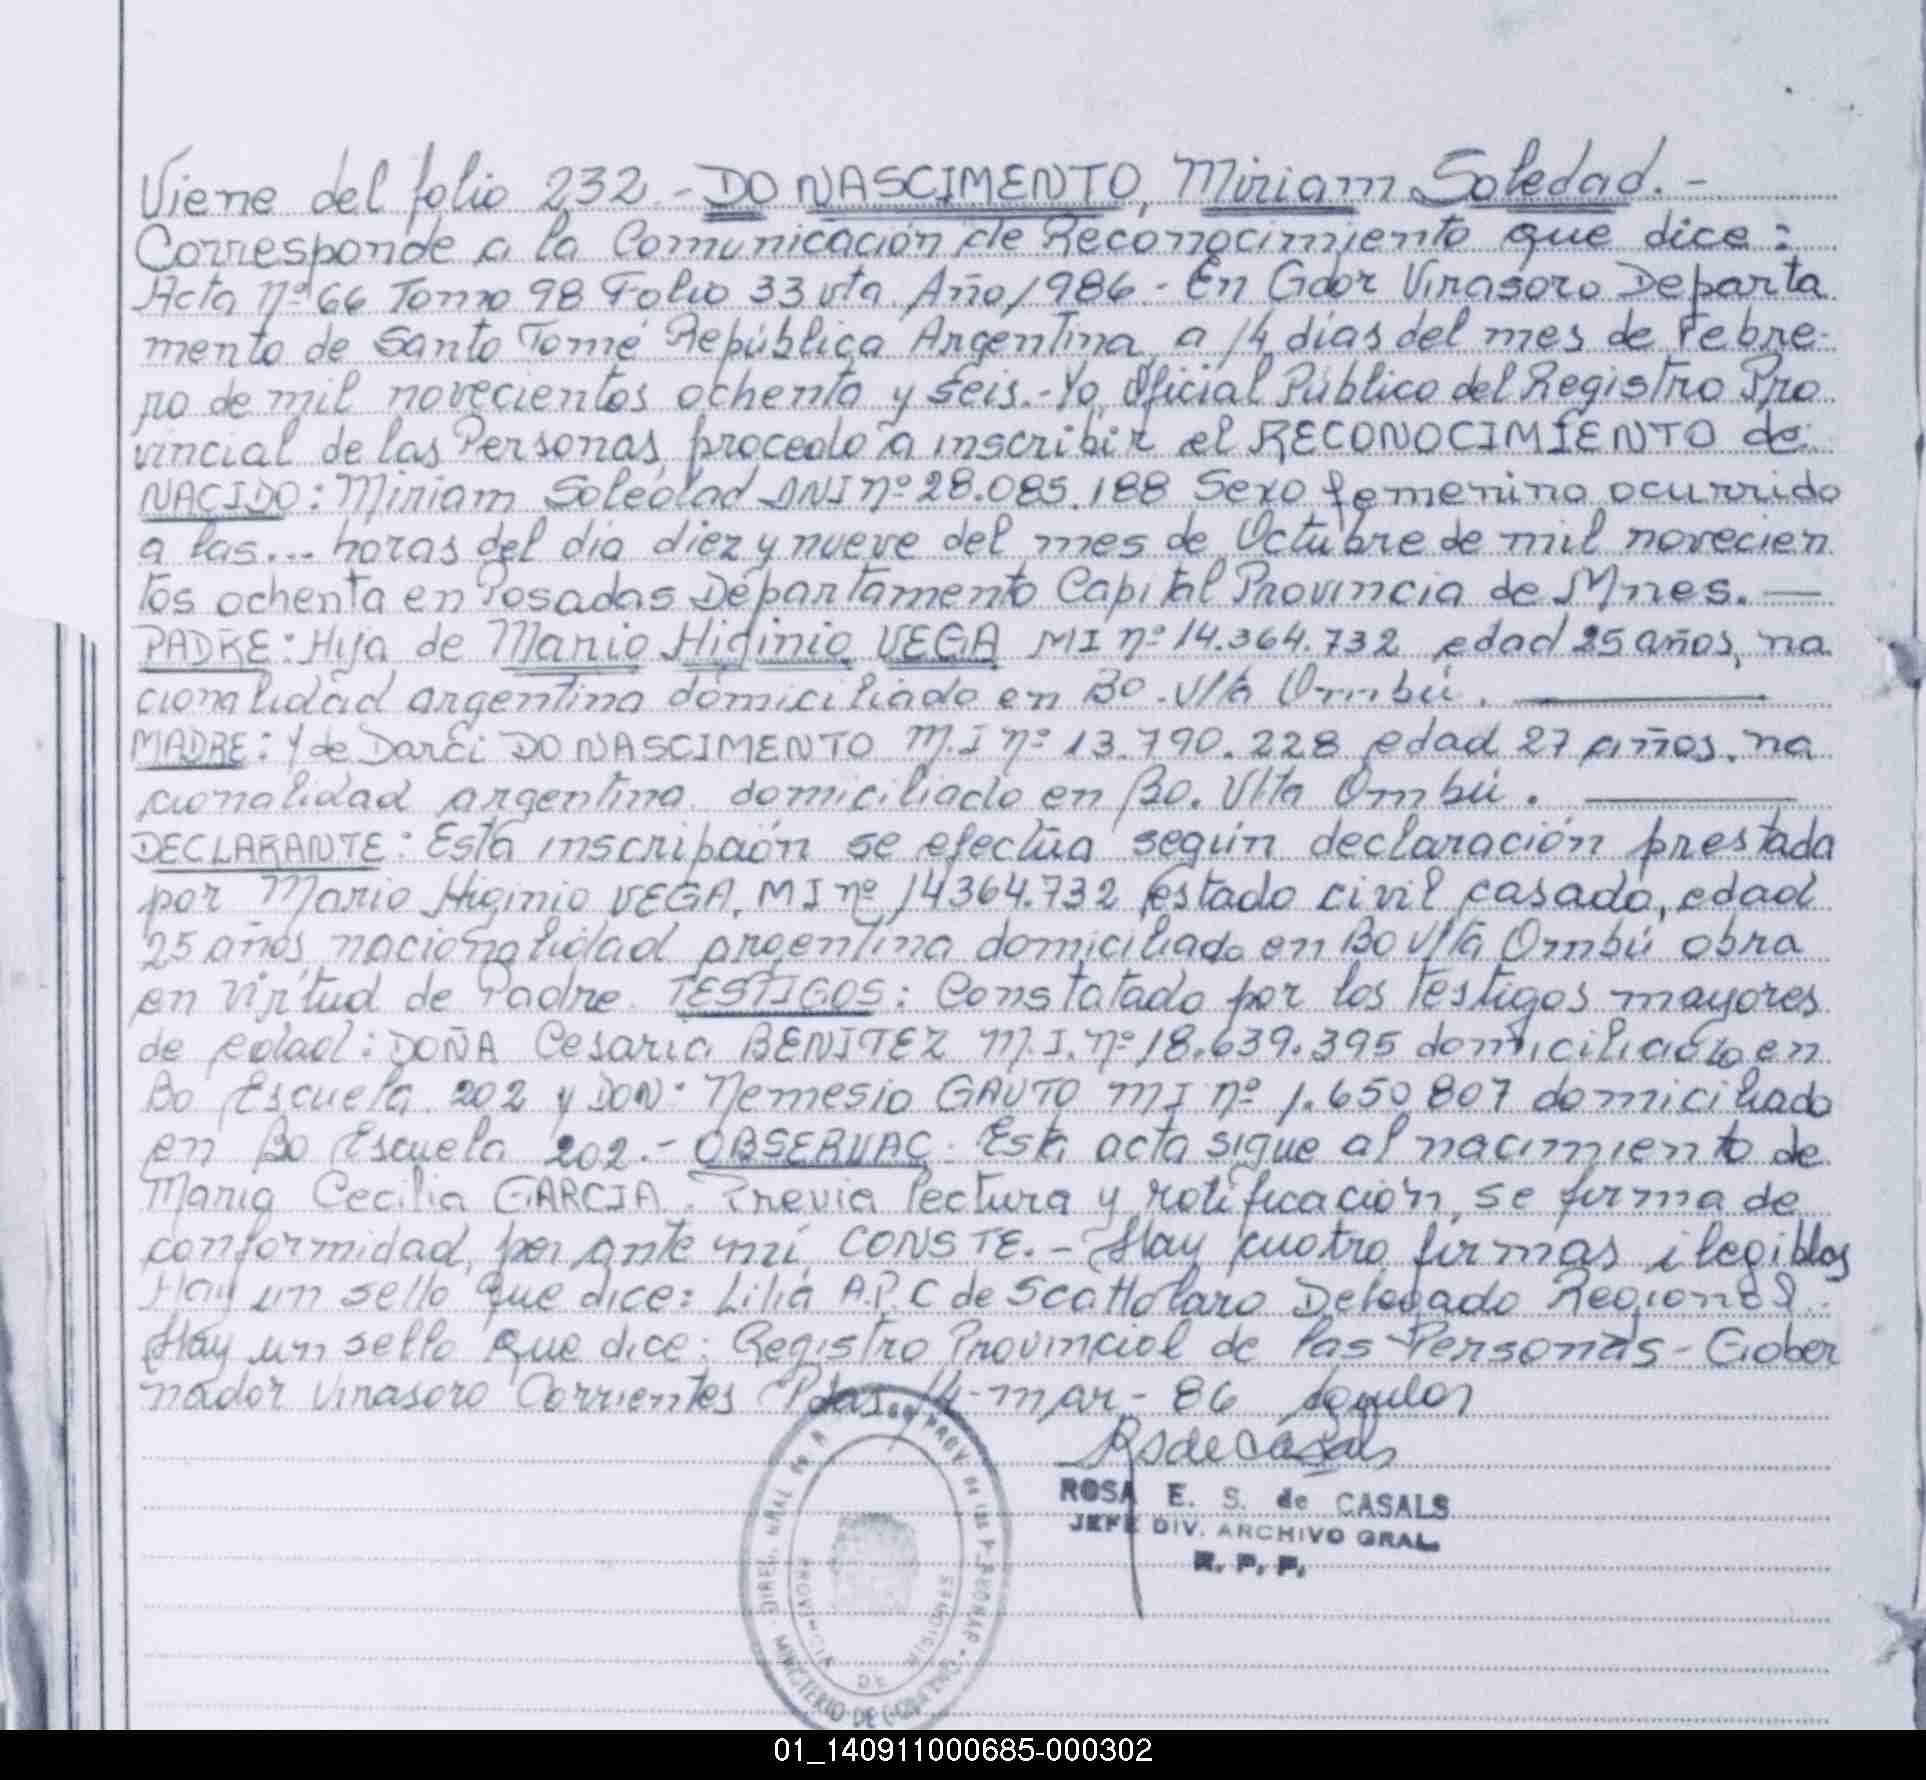 Viene del folio 232 - DO NASCIMENTO, Miriam Soledad. -
Corresponde a la Comunicación de Reconocimiento que dice:
Acta Nº 66 Tomo 98 Folio 33 vta Año 1986 - En Gdor Virasoro Departa
mento de Santo Tomé República Argentina, a 14 días del mes de Febre-
ro de mil novecientos ochenta y seis.- Yo, Oficial Público del Registro Pro
vincial de las Personas, procedo a inscribir el RECONOCIMIENTO de
NACIDO: Miriam Soledad DNI nº 28.085.188 Sexo femenino ocurrido
a las... horas del día diez y nueve del mes de Octubre de mil novecien
tos ochenta en Posadas Departamento Capital Provincia de Mnes. —
PADRE: Hija de Mario Higinio VEGA MI nº 14.364.732 edad 25 años, na
cionalidad argentina domiciliado en Bo. Vlta Ombú. —
MADRE: Y de Darci DO NASCIMENTO M.I nº 13.790.228 edad 27 años, na
cionalidad argentina domiciliado en Bo. Vlta Ombú. —
DECLARANTE: Esta inscripción se efectúa según declaración prestada
por Mario Higinio VEGA, MI nº 14364.732 estado civil casado, edad
25 años, nacionalidad argentina domiciliado en Bo Vlta Ombú obra
en virtud de Padre. TESTIGOS: Constatado por los testigos mayores
de edad: DOÑA Cesaria BENITEZ M.I. nº 18.639.395 domiciliado en
Bo Escuela 202 y DON: Nemesio GAUTO MI nº 1.650.807 domiciliado
en Bo Escuela 202.- OBSERVAC: Esta acta sigue al nacimiento de
Maria Cecilia GARCIA. Previa lectura y rotificación, se firma de
conformidad, por ante mí, CONSTE. - Hay cuatro firmas ilegibles
Hay un sello que dice: Lilia A.P.C de Scattolaro Delegado Regional.
Hay un sello que dice: Registro Provincial de las Personas - Gober
nador Virasoro Corrientes Pdas, 14-mar-86
RS de Casals
ROSA E. S. de CASALS
JEFE DIV. ARCHIVO GRAL.
R. P. P.
PROVINCIA DE MISIONES
MINISTERIO DE GOBIERNO
01_140911000685-000302